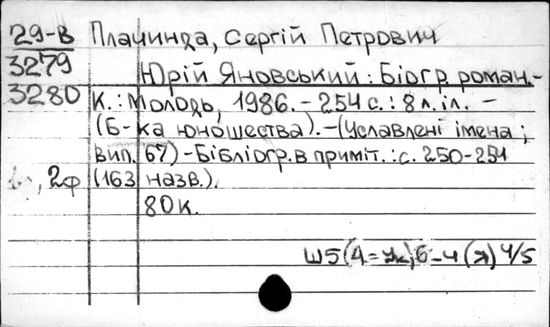 29-В Плачинда, Сергій Петрович
3279 Юрій Яновський: Біогр. роман.-
3280 К.: Молодь, 1986. - 254 с.: 8 л. іл. -
(Б-ка юношества). - (Уславлені імена;
вип. 67) - Бібліогр. в приміт.: с. 250-251
2ф (163 назв.).
80 к.
Ш5(4=Ук)6-4(Я) 4/5